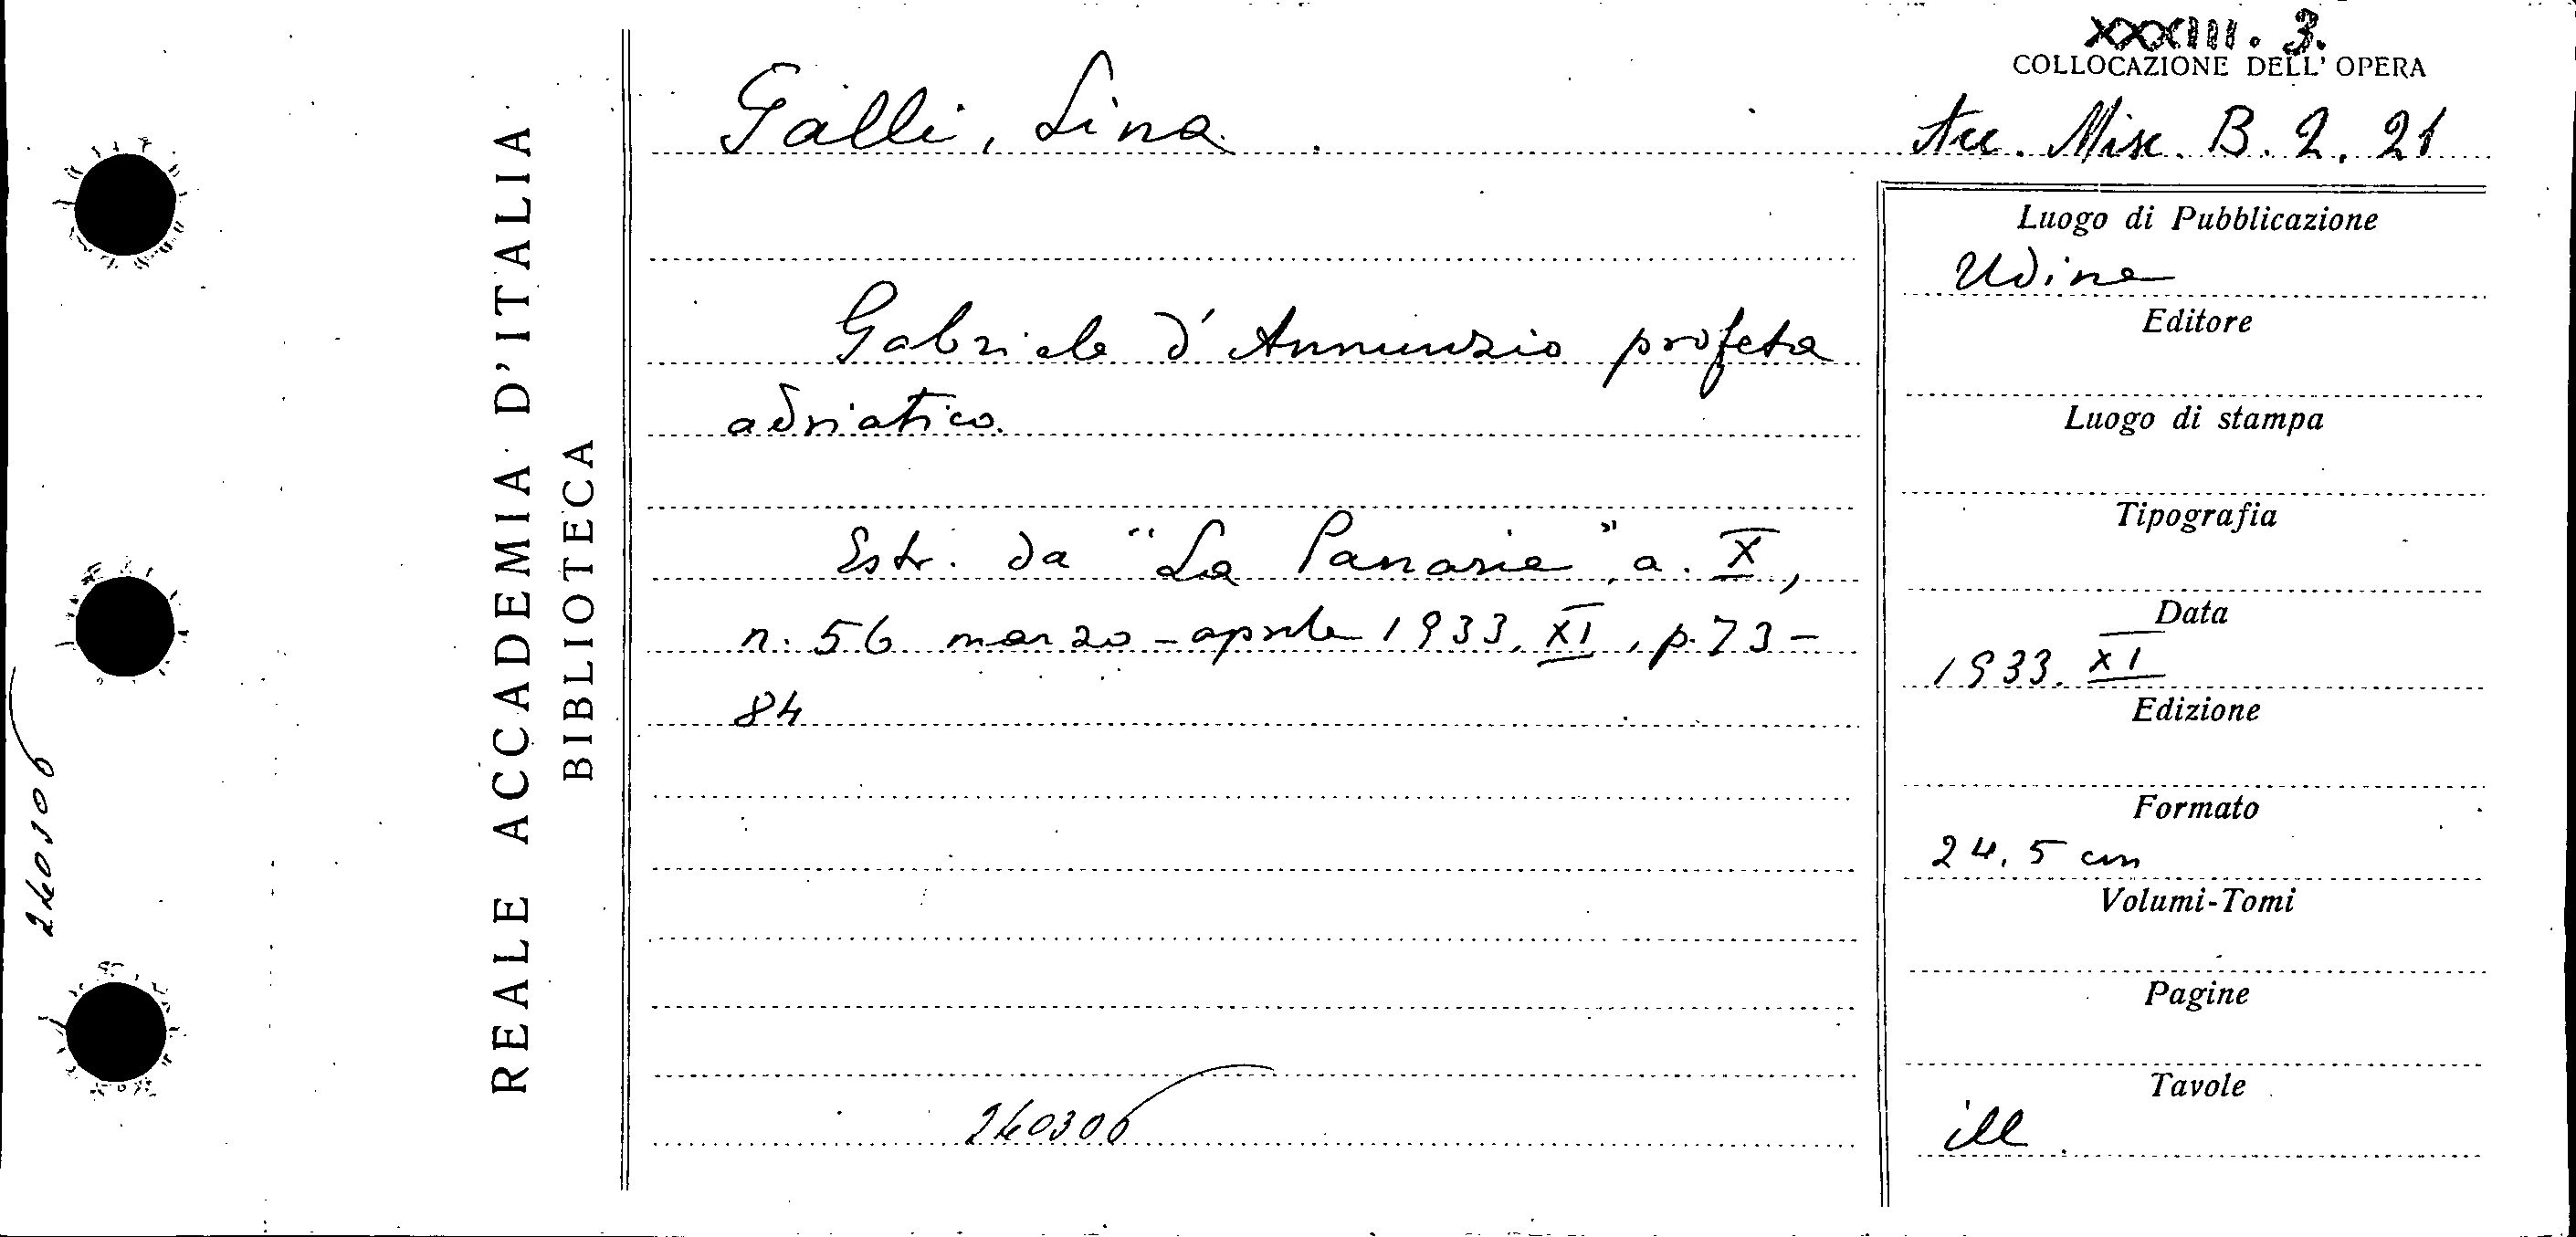 XXXIII. 3.
COLLOCAZIONE DELL' OPERA
Galli, Lina.
Acc. Misc. B. 2. 21
REALE ACCADEMIA D'ITALIA
BIBLIOTECA
Gabriele d'Annunzio profeta
adriatico.
Estr. da "La Panarie" a. X,
n. 56 marzo-aprile 1933, XI, p. 73-
84
240306
240306
Luogo di Pubblicazione
Udine
Editore
Luogo di stampa
Tipografia
Data
1933. XI
Edizione
Formato
24,5 cm
Volumi-Tomi
Pagine
Tavole
ill.